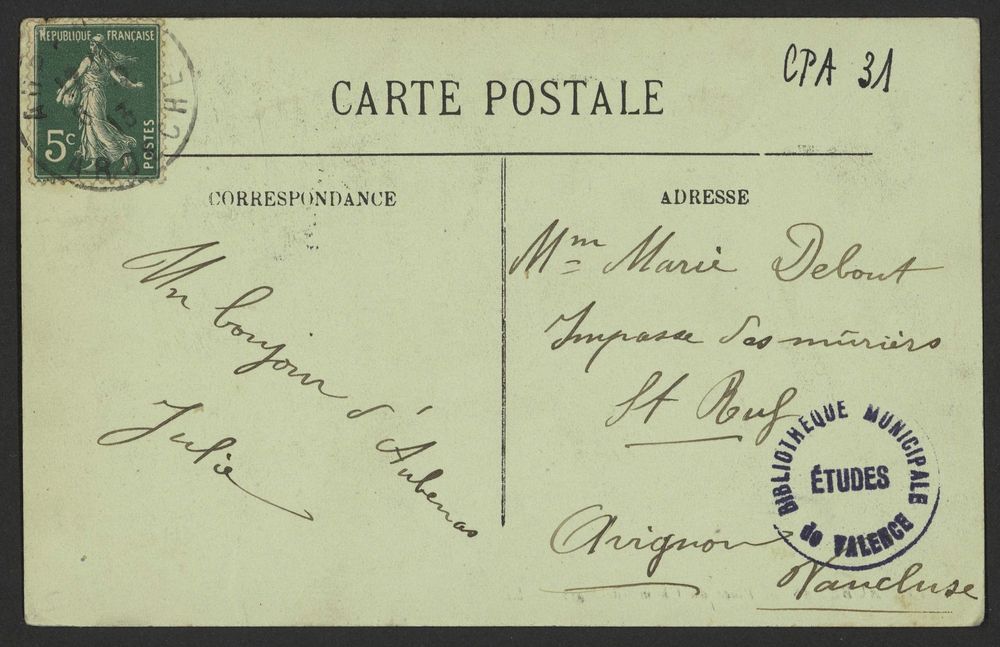 RÉPUBLIQUE FRANÇAISE
5c
POSTES
13
ARDÈCHE
CPA 31
CARTE POSTALE
CORRESPONDANCE
Un bonjour
d'Aubenas
Julie
ADRESSE
Mme Marie Debout
Impasse des mûriers
St Ruf
Avignon
Vaucluse
BIBLIOTHÈQUE MUNICIPALE
ÉTUDES
de VALENCE